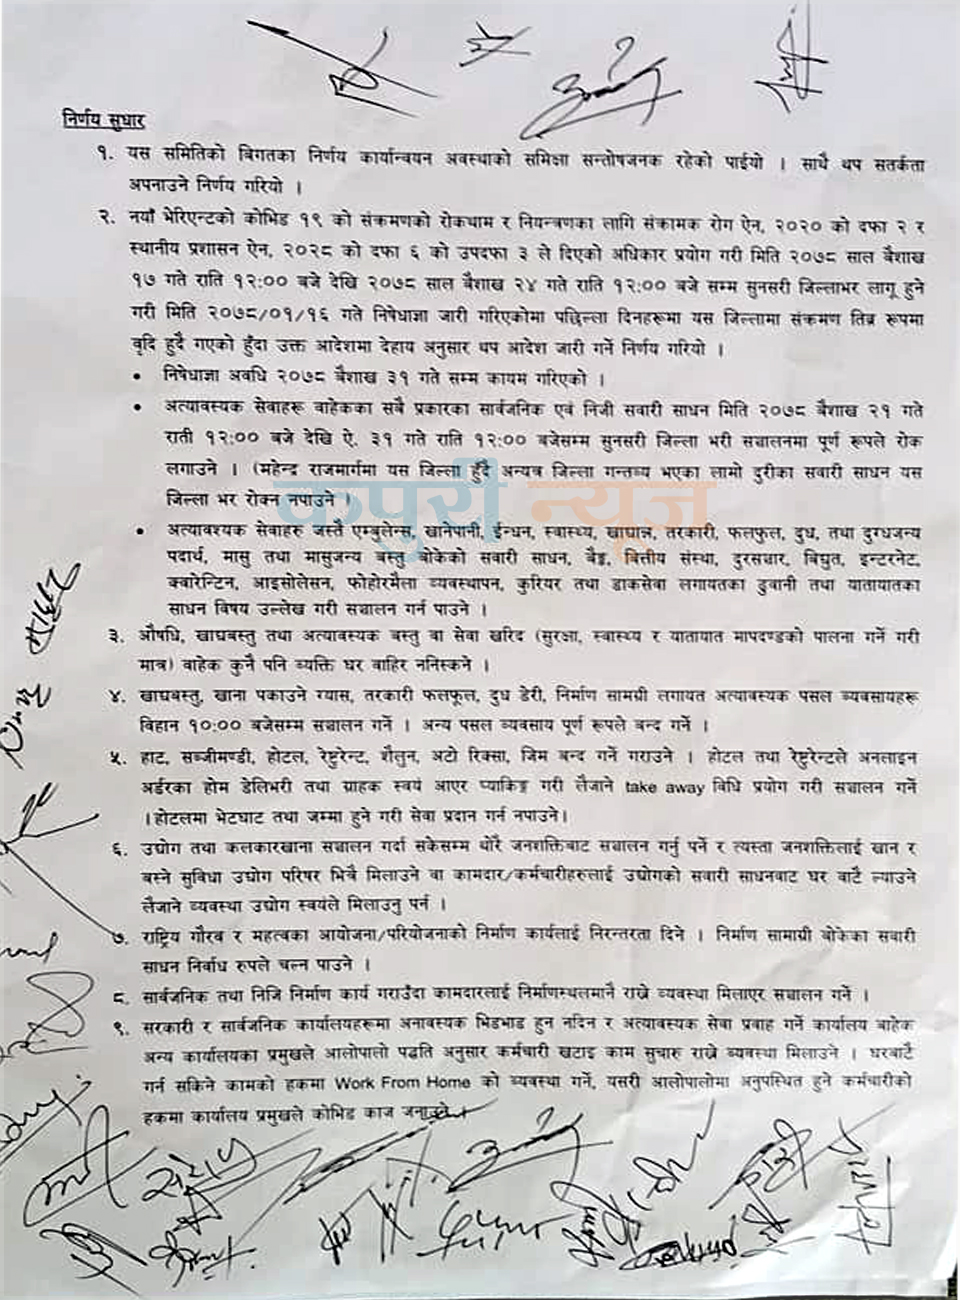 निर्णय सुधार
१. यस समितिको बिगतका निर्णय कार्यान्वयन अवस्थाको समिक्षा सन्तोषजनक रहेको पाईयो । साथै थप सतर्कता
अपनाउने निर्णय गरियो ।
२. नयाँ भेरिएन्टको कोभिड १९ को संक्रमणको रोकथाम र नियन्त्रणका लागि संक्रामक रोग ऐन, २०२० को दफा २ र
स्थानीय प्रशासन ऐन, २०२८ को दफा ६ को उपदफा ३ ले दिएको अधिकार प्रयोग गरी मिति २०७८ साल बैशाख
१७ गते राति १२:०० बजे देखि २०७८ साल बैशाख २४ गते राति १२:०० बजे सम्म सुनसरी जिल्लाभर लागू हुने
गरी मिति २०७८/०१/१६ गते निषेधाज्ञा जारी गरिएकोमा पछिल्ला दिनहरूमा यस जिल्लामा संक्रमण तिब्र रूपमा
वृदि हुदै गएको हुँदा उक्त आदेशमा देहाय अनुसार थप आदेश जारी गर्ने निर्णय गरियो ।
• निषेधाज्ञा अवधि २०७८ बैशाख ३१ गते सम्म कायम गरिएको ।
• अत्यावस्यक सेवाहरू वाहेकका सबै प्रकारका सार्वजनिक एवं निजी सवारी साधन मिति २०७८ बैशाख २१ गते
राती १२:०० बजे देखि ऐ. ३१ गते राति १२:०० बजेसम्म सुनसरी जिल्ला भरी सञ्चालनमा पूर्ण रूपले रोक
लगाउने । (महेन्द्र राजमार्गमा यस जिल्ला हुँदै अन्यत्र जिल्ला गन्तव्य भएका लामो दुरीका सवारी साधन यस
जिल्ला भर रोक्न नपाउने ।
कपुरी न्यूज
• अत्यावश्यक सेवाहरु जस्तै एम्बुलेन्स, खानेपानी, ईन्धन, स्वास्थ्य, खाद्यान्न, तरकारी, फलफुल, दुध, तथा दुग्धजन्य
पदार्थ, मासु तथा मासुजन्य बस्तु बोकेको सवारी साधन, बैङ्क, बित्तीय संस्था, दुरसञ्चार, बिद्युत, इन्टरनेट,
क्वारेन्टिन, आइसोलेसन, फोहोरमैला व्यवस्थापन, कुरियर तथा डाकसेवा लगायतका ढुवानी तथा यातायातका
साधन विषय उल्लेख गरी सञ्चालन गर्न पाउने ।
३. औषधि, खाद्यबस्तु तथा अत्यावस्यक बस्तु वा सेवा खरिद (सुरक्षा, स्वास्थ्य र यातायात मापदण्डको पालना गर्ने गरी
मात्र) वाहेक कुनै पनि व्यक्ति घर वाहिर ननिस्कने ।
४. खाद्यबस्तु, खाना पकाउने ग्यास, तरकारी फलफूल, दुध डेरी, निर्माण सामग्री लगायत अत्यावस्यक पसल व्यवसायहरू
विहान १०:०० बजेसम्म सञ्चालन गर्ने । अन्य पसल व्यवसाय पूर्ण रूपले बन्द गर्ने ।
५. हाट, सब्जीमण्डी, होटल, रेष्टुरेन्ट, शैलुन, अटो रिक्सा, जिम बन्द गर्ने गराउने । होटल तथा रेष्टुरेन्टले अनलाइन
अर्डरका होम डेलिभरी तथा ग्राहक स्वयं आएर प्याकिङ्ग गरी लैजाने take away विधि प्रयोग गरी सञ्चालन गर्ने
।होटलमा भेटघाट तथा जम्मा हुने गरी सेवा प्रदान गर्न नपाउने।
६. उद्योग तथा कलकारखाना सञ्चालन गर्दा सकेसम्म थोरै जनशक्तिबाट सञ्चालन गर्नु पर्ने र त्यस्ता जनशक्तिलाई खान र
बस्ने सुविधा उद्योग परिषर भित्रै मिलाउने वा कामदार/कर्मचारीहरुलाई उद्योगको सवारी साधनवाट घर वाटै ल्याउने
लैजाने व्यवस्था उद्योग स्वयंले मिलाउनु पर्ने ।
७. राष्ट्रिय गौरव र महत्वका आयोजना/परियोजनाको निर्माण कार्यलाई निरन्तरता दिने । निर्माण सामाग्री बोकेका सवारी
साधन निर्वाध रुपले चल्न पाउने ।
८. सार्वजनिक तथा निजि निर्माण कार्य गराउँदा कामदारलाई निर्माणस्थलमानै राख्ने व्यवस्था मिलाएर सञ्चालन गर्ने ।
९. सरकारी र सार्वजनिक कार्यालयहरूमा अनावस्यक भिडभाड हुन नदिन र अत्यावस्यक सेवा प्रवाह गर्ने कार्यालय बाहेक
अन्य कार्यालयका प्रमुखले आलोपालो पद्धति अनुसार कर्मचारी खटाइ काम सुचारु राख्ने व्यवस्था मिलाउने । घरबाटै
गर्न सकिने कामको हकमा Work From Home को व्यवस्था गर्ने, यसरी आलोपालोमा अनुपस्थित हुने कर्मचारीको
हकमा कार्यालय प्रमुखले कोभिड काज जनाउने।